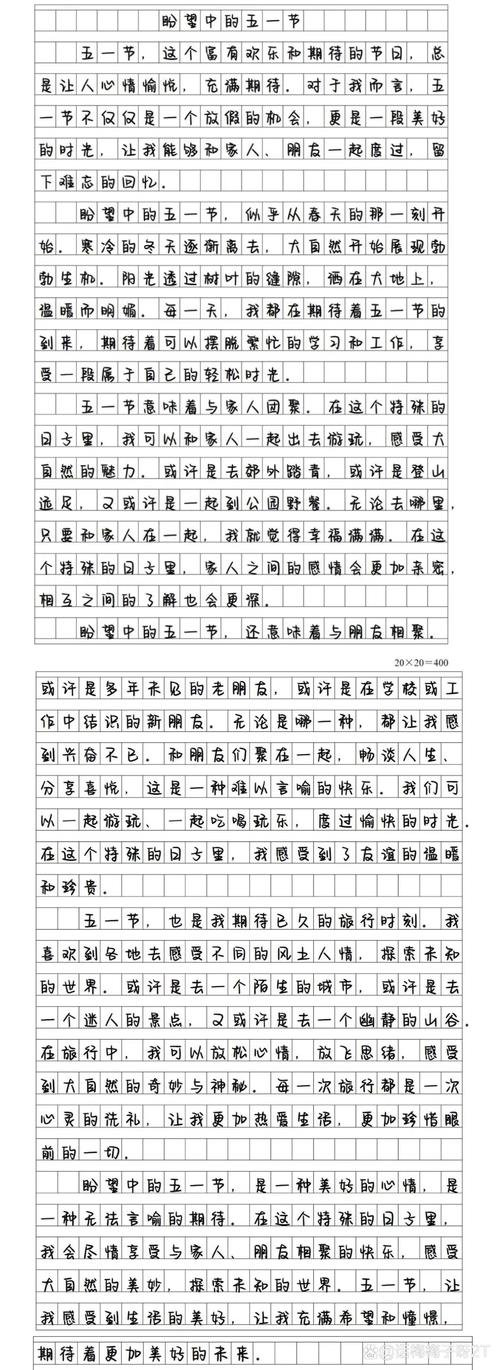 盼望中的五一节
五一节，这个富有欢乐和期待的节日，总
是让人心情愉悦，充满期待．对于我而言，五
一节不仅仅是一个放假的机会，更是一段美好
的时光，让我能够和家人、朋友一起度过，留
下难忘的回忆．
盼望中的五一节，似乎从春天的那一刻开
始．寒冷的冬天逐渐离去，大自然开始展现勃
勃生机．阳光透过树叶的缝隙，洒在大地上，
温暖而明媚．每一天，我都在期待着五一节的
到来，期待着可以摆脱繁忙的学习和工作，享
受一段属于自己的轻松时光．
五一节意味着与家人团聚．在这个特殊的
日子里，我可以和家人一起出去游玩，感受大
自然的魅力．或许是去郊外踏青，或许是登山
远足，又或许是一起到公园野餐．无论去哪里，
只要和家人在一起，我就觉得幸福满满．在这
个特殊的日子里，家人之间的感情会更加亲密，
相互之间的了解也会更深．
盼望中的五一节，还意味着与朋友相聚．
20×20=400
或许是多年未见的老朋友，或许是在学校或工
作中结识的新朋友．无论是哪一种，都让我感
到兴奋不已．和朋友们聚在一起，畅谈人生、
分享喜悦，这是一种难以言喻的快乐．我们可
以一起游玩、一起吃喝玩乐，度过愉快的时光．
在这个特殊的日子里，我感受到了友谊的温暖
和珍贵．
五一节，也是我期待已久的旅行时刻．我
喜欢到各地去感受不同的风土人情，探索未知
的世界．或许是去一个陌生的城市，或许是去
一个迷人的景点，又或许是去一个幽静的山谷．
在旅行中，我可以放松心情，放飞思绪，感受
到大自然的奇妙与神秘．每一次旅行都是一次
心灵的洗礼，让我更加热爱生活，更加珍惜眼
前的一切．
盼望中的五一节，是一种美好的心情，是
一种无法言喻的期待．在这个特殊的日子里，
我会尽情享受与家人、朋友相聚的快乐，感受
大自然的美妙，探索未知的世界．五一节，让
我感受到生活的美好，让我充满希望和憧憬，
期待着更加美好的未来．